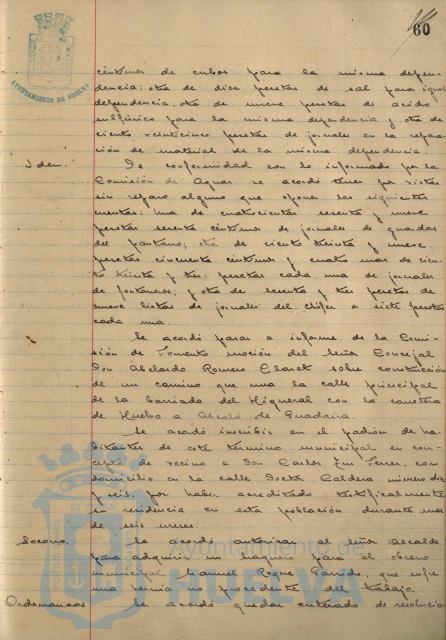 60
AYUNTAMIENTO DE HUELVA
céntimos de cubos para la misma depen-
dencia; otra de diez pesetas de sal para igual
dependencia, otra de nueve pesetas de acido
sulfúrico para la misma dependencia y otra de
ciento veinticinco pesetas de jornales en la repara-
ción de material de la misma dependencia.
Idem. De conformidad con lo informado por la
Comisión de Aguas se acordó tener por vistas
sin reparo alguno que oponer las siguientes
cuentas: Una de cuatrocientas sesenta y nueve
pesetas sesenta céntimos de jornales de guardas
del pantano; otra de ciento treinta y nueve
pesetas cincuenta céntimos y cuatro mas de cien-
to treinta y tres pesetas cada una de jornales
de fontaneros; y otra de sesenta y tres pesetas de
nueve listas de jornales del chófer a siete pesetas
cada una.
Se acordó pasar a informe de la Comi-
sión de Fomento moción del Señor Concejal
Don Abelardo Romero Claret sobre construcción
de un camino que una la calle principal
de la barriada del Higueral con la carretera
de Huelva a Alcalá de Guadaira.
Se acordó inscribir en el padrón de ha-
bitantes de este término municipal en con-
cepto de vecino a Don Carlos Ferrer, con
domicilio en la calle Doctor Caldera número diez
y seis, por haber acreditado testificalmente
su residencia en esta población durante mas
de seis meses.
Socorro. Se acordó autorizar al Señor Alcalde
para adquirir un braguero para el obrero
municipal Manuel Roque Garrido, que sufre
una hernia no procedente del trabajo.
Ordenanzas Se acordó quedar enterado de resolución
Ayuntamiento de
HUELVA